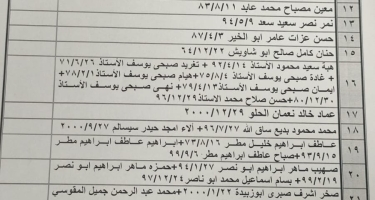 ١٢ معين مصباح محمد عابد ٨٣/٨/١١
١٣ نمر نصر سعيد سعد ٩٤/٥/٩
١٤ حسن عزات عامر ابو الخير ٨٧/٤/٩
١٥ حنان كامل صالح ابو شاويش ٦٤/١٢/٢٢
هبة سعيد محمود الاستاذ ٩٢/٤/١٤ + تغريد صبحي يوسف الاستاذ ٧١/٦/٢٦
+ غادة صبحي يوسف الاستاذ ٧٥/٨/٤+هيام صبحي يوسف الاستاذ ٧٨/٢/١+
١٦ ايمان صبحي يوسف الاستاذ ٧٩/٤/١٣+ نهى صبحي يوسف الاستاذ
٨٠/١٢/٣٠+حسن صلاح محمد الاستاذ ٩٦/١٢/٢٩
١٧ عماد خالد نعمان الحلو ٢٠٠٠/١٢/٢٩
١٨ محمد محمود بديع ساق الله ٩٦/٧/٢٧+ آلاء امجد حيدر سيسالم ٢٠٠٠/٩/٢٧
١٩ عاطف ابراهيم خليل مطر ٧٣/٨/١٦+ابراهيم عاطف ابراهيم مطر
٩٣/٩/١٥+صباح عاطف ابراهيم مطر ٩٩/٩/٦
٢٠ صهيب ماهر ابراهيم ابو نصر ٩٤/١/٢٧+حمزه ماهر ابراهيم ابو نصر
٩٩/٢/١٩+ بسام اسماعيل محمد ابو ناصر ٩٧/١٢/٢٤
٢١ صخر اشرف صبري ابوزبيدة ٢٠٠٠/١/٢٢+محمد عبد الرحمن جميل المقوسي